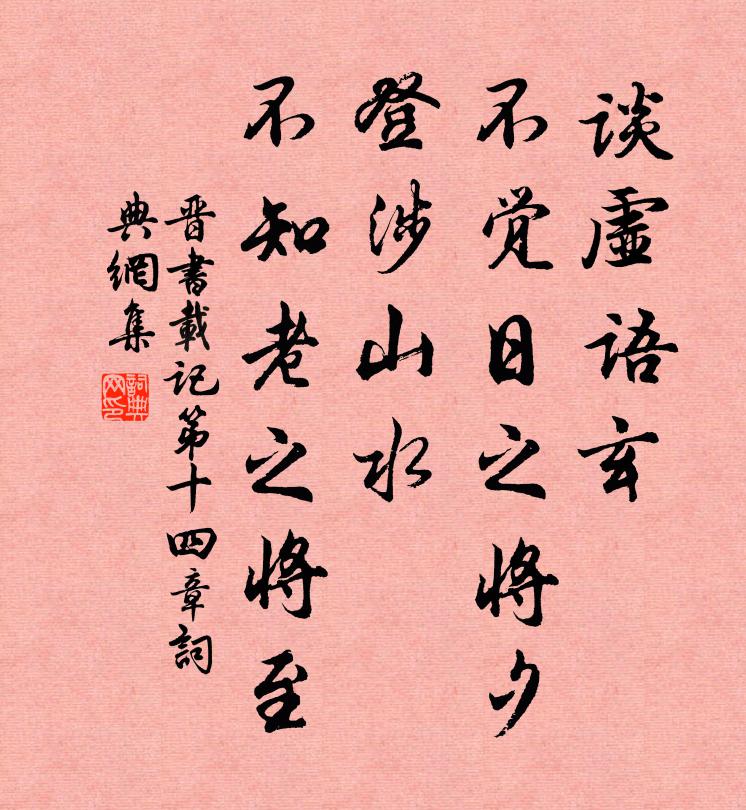 谈虚语玄
不觉日之将夕
登涉山水
不知老之将至
晋書載记第十四章詞
典網集
詞典网印